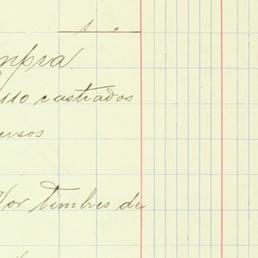 mpra
110 castrados
ersos
Por timbres de